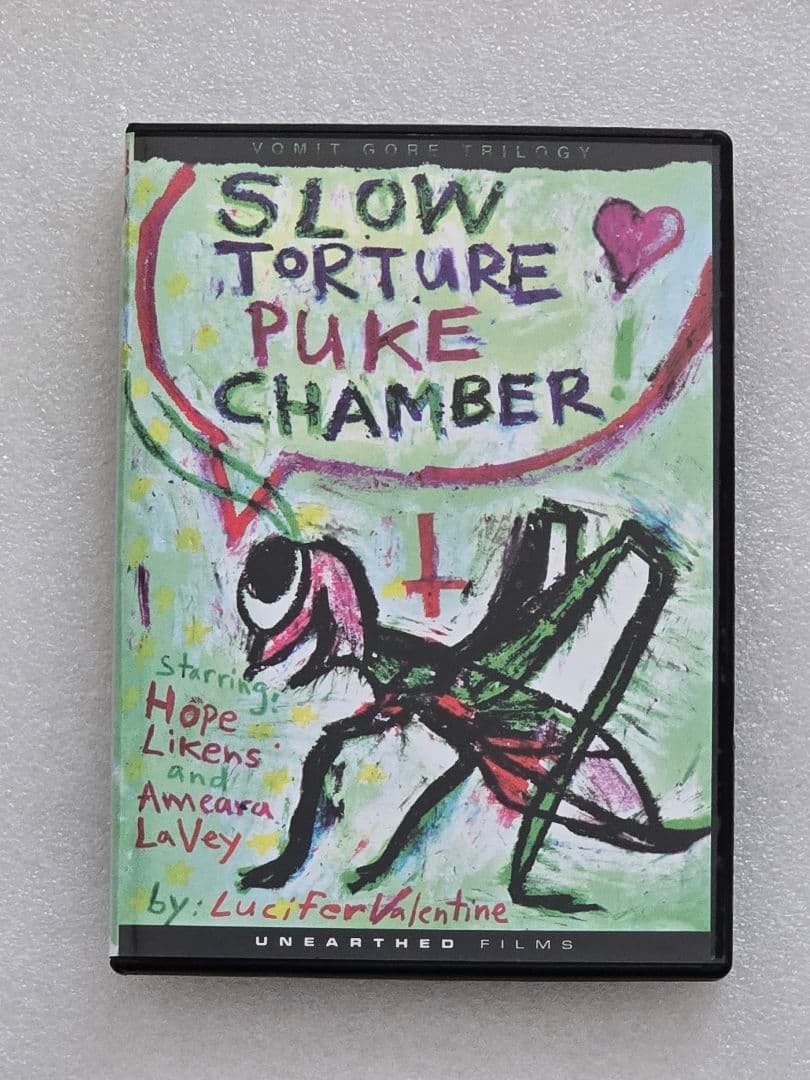 VOMIT GORE TRILOGY
SLOW
TORTURE
PUKE
CHAMBER!
starring:
HOPE
LIKENS
and
AMEARA
LaVey
by: LuciferValentine
UNEARTHED FILMS